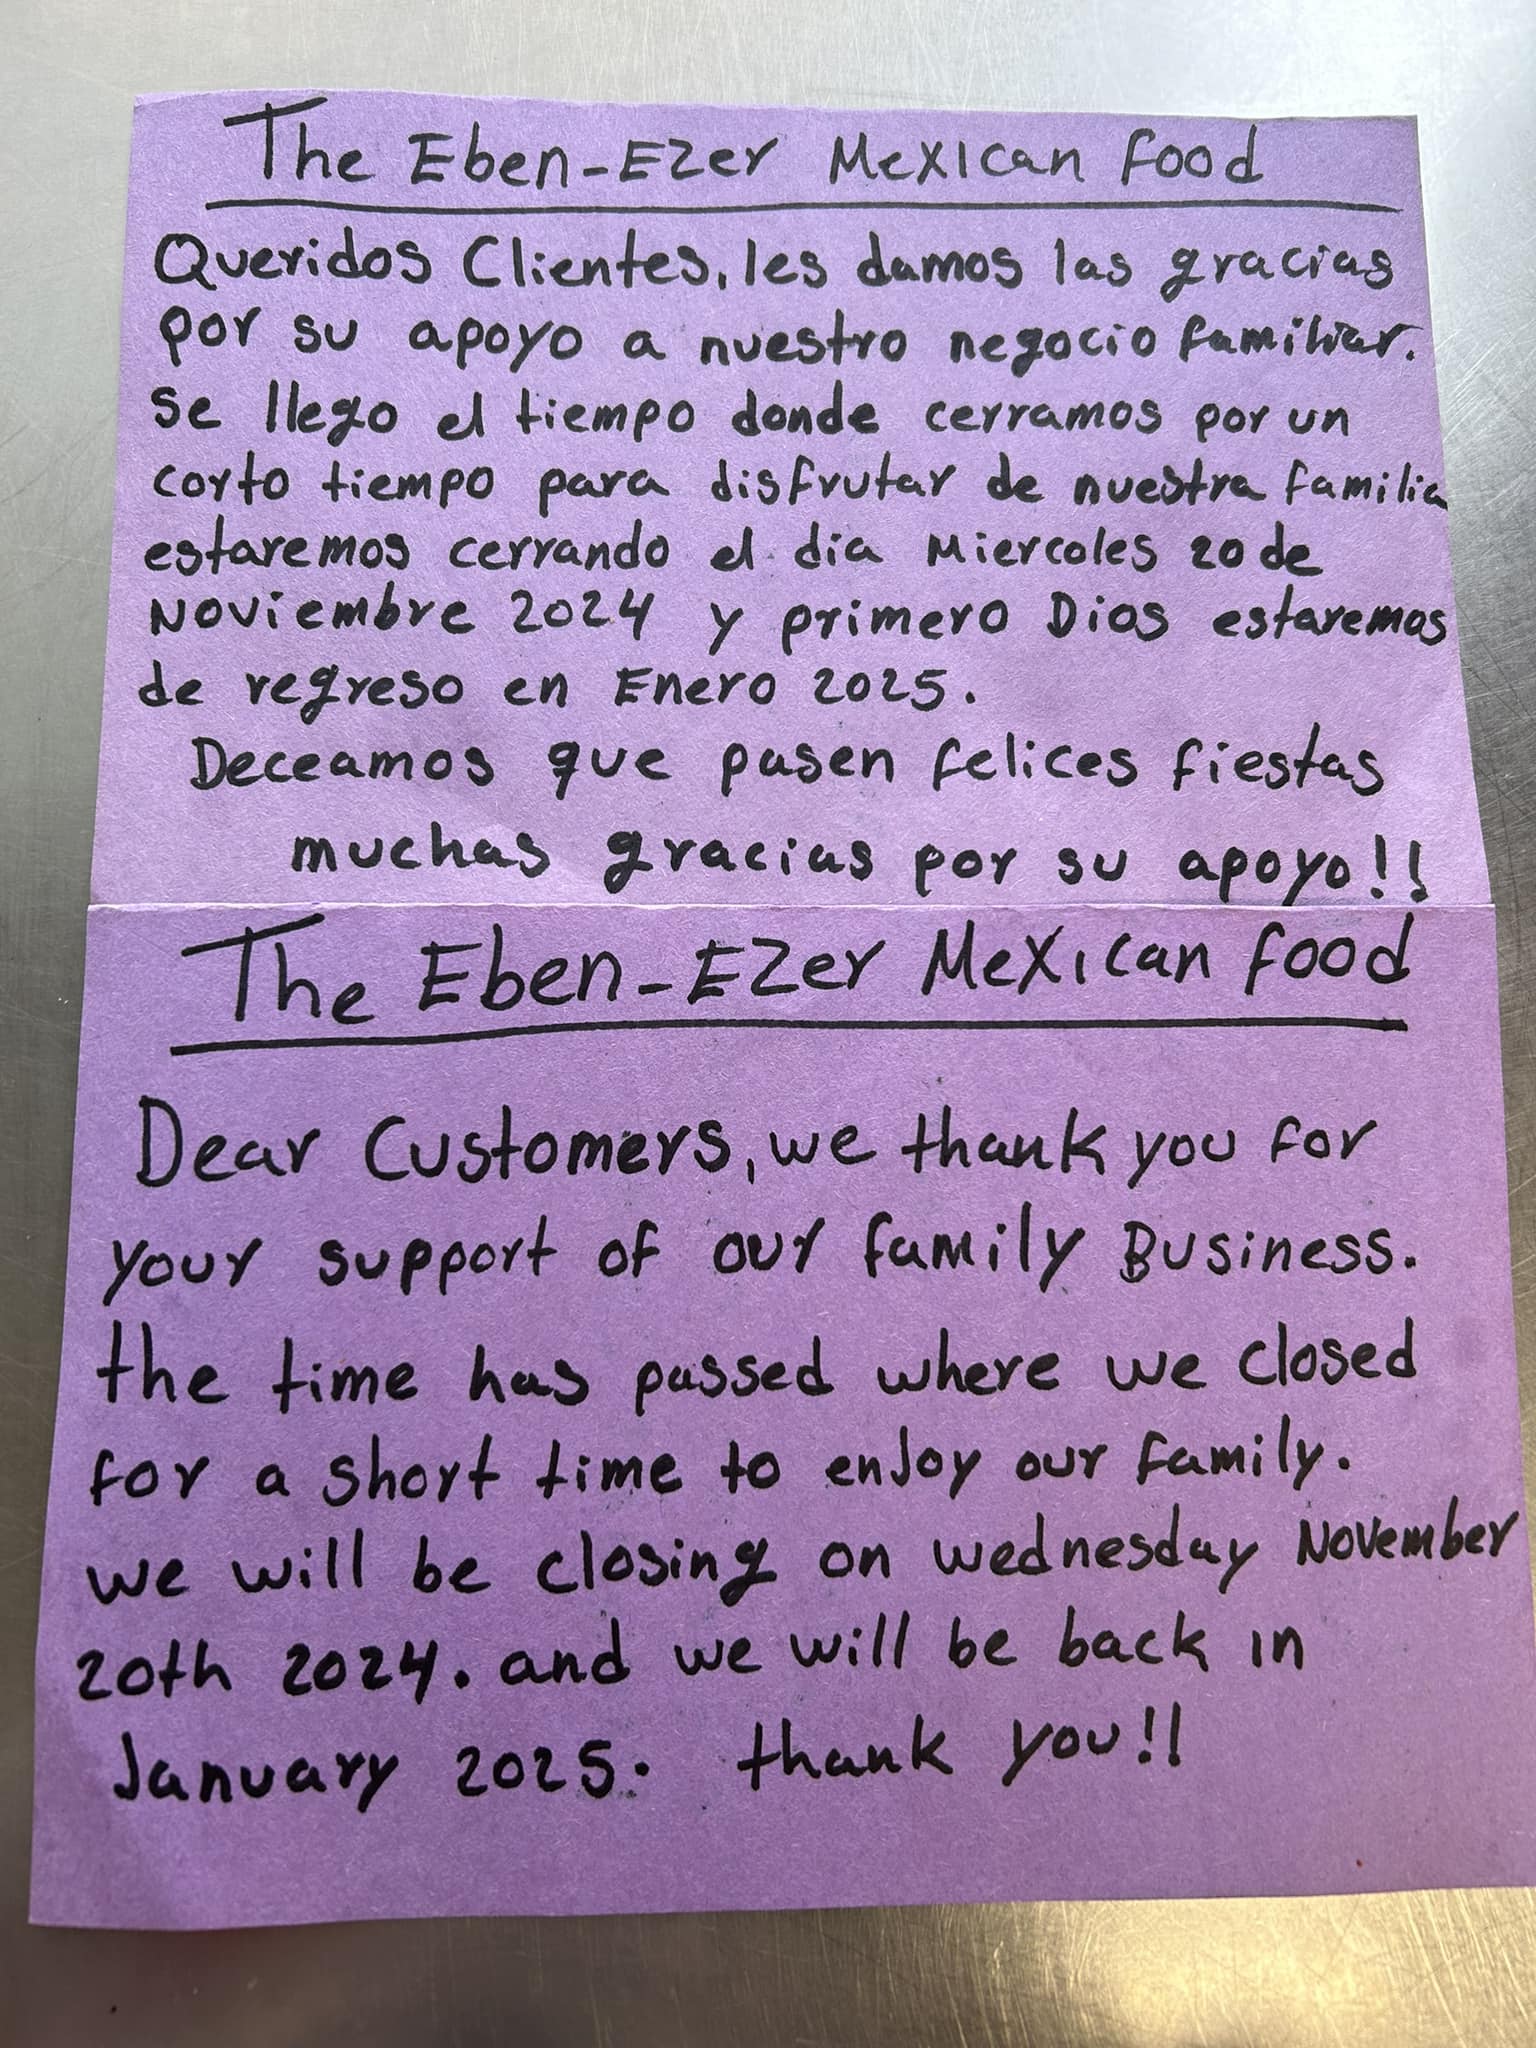 The Eben-Ezer Mexican food
Queridos Clientes, les damos las gracias
por su apoyo a nuestro negocio familiar.
se llego el tiempo donde cerramos por un
corto tiempo para disfrutar de nuestra familia
estaremos cerrando el dia Miercoles 20 de
Noviembre 2024 y primero Dios estaremos
de regreso en Enero 2025.
Deceamos que pasen felices fiestas
muchas gracias por su apoyo!!
The Eben-Ezer Mexican food
Dear Customers, we thank you for
your support of our family Business.
the time has passed where we closed
for a short time to enjoy our family.
we will be closing on wednesday November
20th 2024. and we will be back in
January 2025. thank you!!